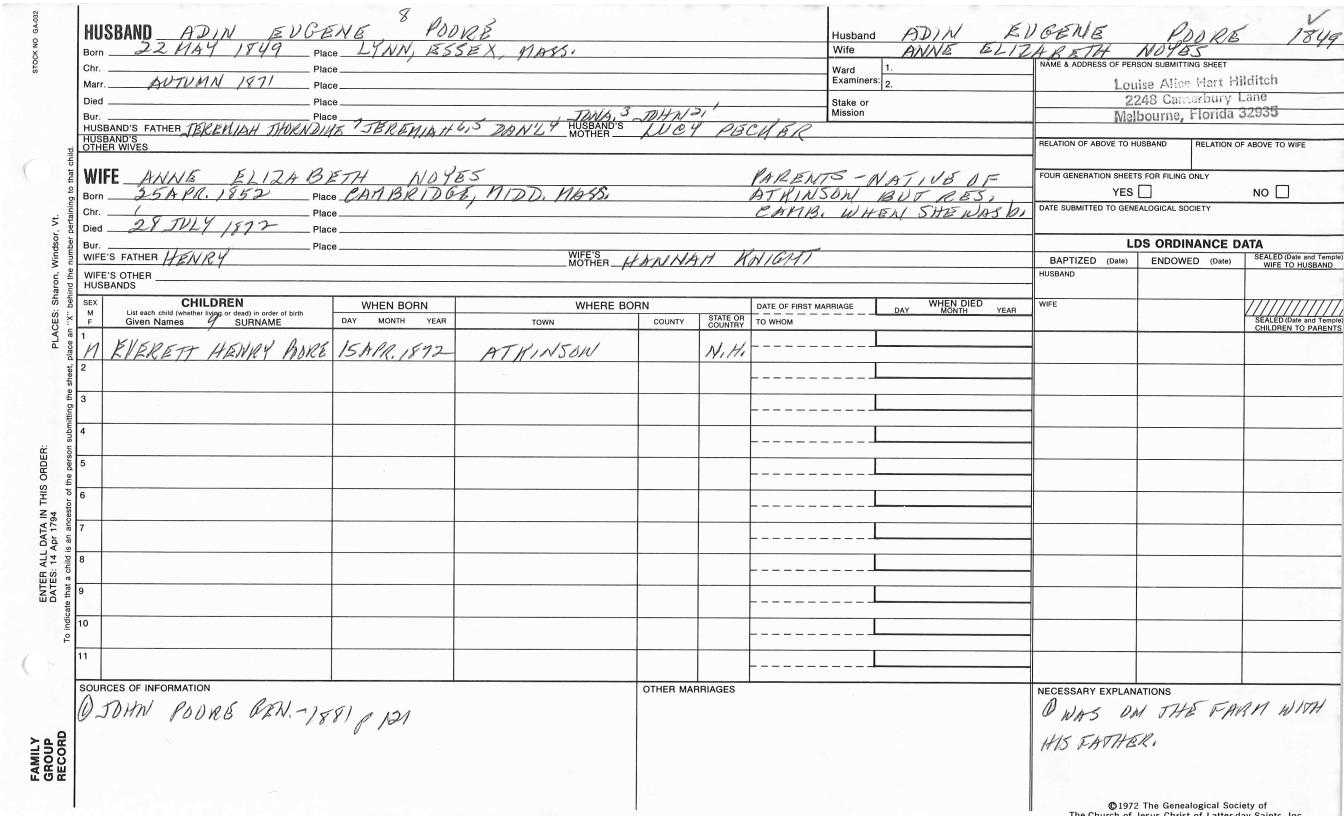 8
HUSBAND ADIN EUGENE POORE
Born 22 MAY 1849 Place LYNN, ESSEX, MASS.
Chr. Place
Marr. AUTUMN 1871 Place
Died Place
Bur. Place JONA, 3 JOHN 2, 1
HUSBAND'S FATHER JEREMIAH THORNDIKE 7 JEREMIAH 6,5 DAN'L 4 HUSBAND'S MOTHER LUCY PECKER
HUSBAND'S OTHER WIVES
WIFE ANNE ELIZABETH NOYES PARENTS - NATIVE OF
Born 25 APR. 1852 Place CAMBRIDGE, MIDD. MASS. ATKINSON BUT RES.
Chr. Place CAMB. WHEN SHE WAS b.
Died 28 JULY 1872 Place
Bur. Place
WIFE'S FATHER HENRY WIFE'S MOTHER HANNAH KNIGHT
WIFE'S OTHER HUSBANDS
Husband ADIN EUGENE POORE 1849
Wife ANNE ELIZABETH NOYES
Ward Examiners: 1.
2.
Stake or Mission
NAME & ADDRESS OF PERSON SUBMITTING SHEET
Louise Alice Hart Hilditch
2248 Canterbury Lane
Melbourne, Florida 32935
RELATION OF ABOVE TO HUSBAND RELATION OF ABOVE TO WIFE
FOUR GENERATION SHEETS FOR FILING ONLY
YES NO
DATE SUBMITTED TO GENEALOGICAL SOCIETY
LDS ORDINANCE DATA
BAPTIZED (Date) ENDOWED (Date) SEALED (Date and Temple) WIFE TO HUSBAND
HUSBAND
WIFE
SEALED (Date and Temple) CHILDREN TO PARENTS
SEX M F
CHILDREN
List each child (whether living or dead) in order of birth
Given Names 9 SURNAME
WHEN BORN
DAY MONTH YEAR
WHERE BORN
TOWN COUNTY STATE OR COUNTRY
DATE OF FIRST MARRIAGE
TO WHOM
WHEN DIED
DAY MONTH YEAR
1
M EVERETT HENRY POORE 15 APR. 1872 ATKINSON N.H.
2
3
4
5
6
7
8
9
10
11
SOURCES OF INFORMATION
① JOHN POORE GEN. - 1881 p 121
OTHER MARRIAGES
NECESSARY EXPLANATIONS
① WAS ON THE FARM WITH
HIS FATHER.
©1972 The Genealogical Society of
The Church of Jesus Christ of Latter-day Saints, Inc.
STOCK NO GA-032
PLACES: Sharon, Windsor, Vt.
To indicate that a child is an ancestor of the person submitting the sheet, place an "X" behind the number pertaining to that child.
ENTER ALL DATA IN THIS ORDER:
DATES: 14 Apr 1794
FAMILY
GROUP
RECORD